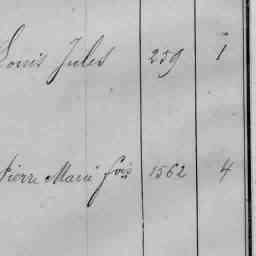 Louis Jules 259 1
Pierre Marie fois 1562 4